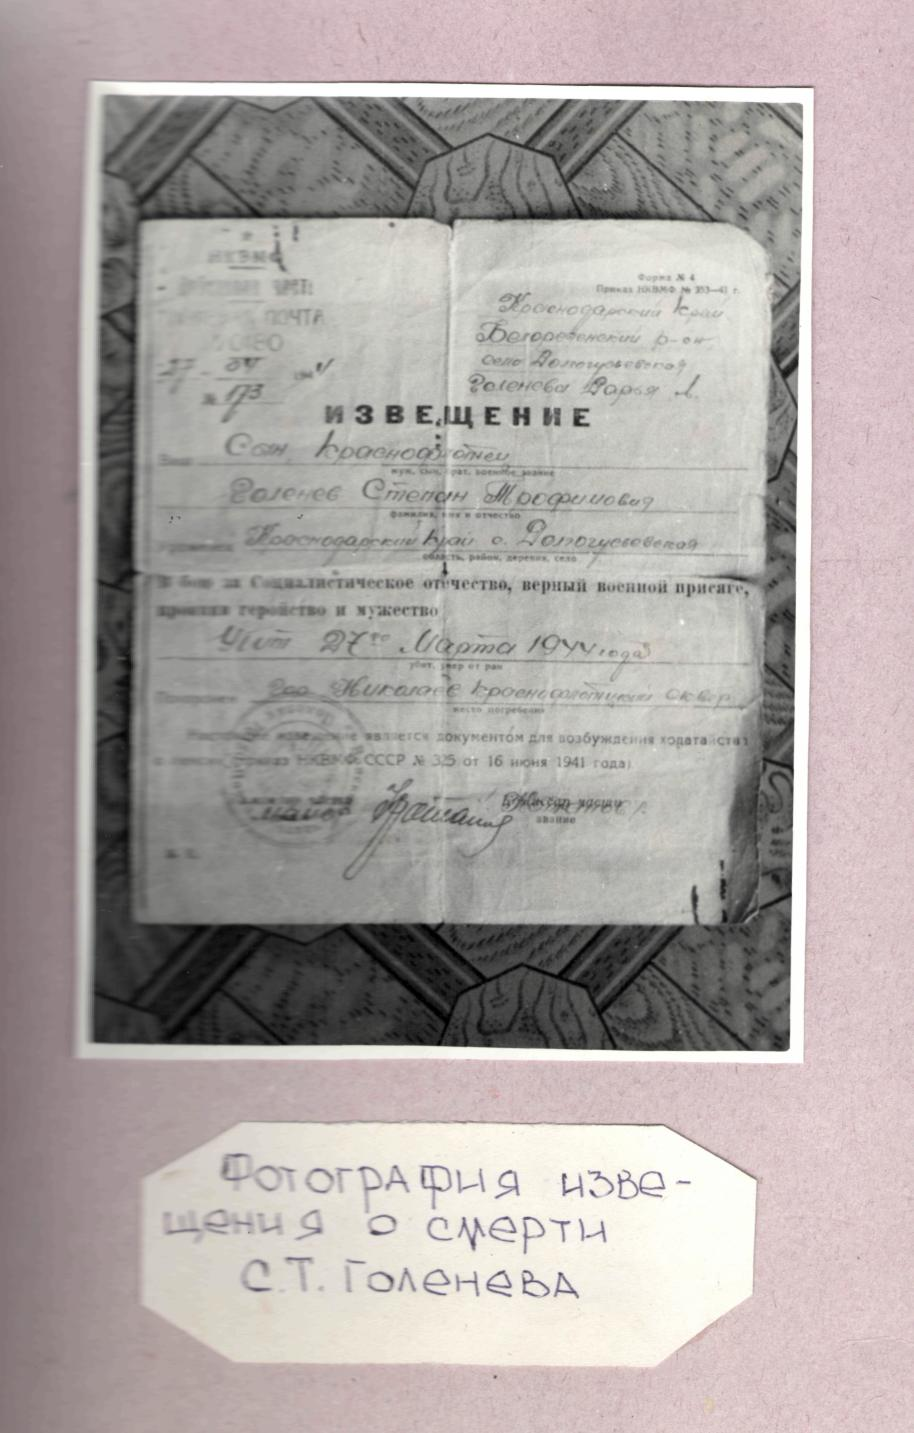 Форма № 4
Приказ НКВМФ № 353—41 г.
Краснодарский край
Белореченский р-он.
село Долгогусьевская
Голенева Дарья Л.
27 - 04 194
№ 173
ИЗВЕЩЕНИЕ
Ваш Сын, краснофлотец
муж, сын, брат, военное звание
Голенев Степан Трофимович
фамилия, имя и отчество
Уроженец Краснодарский край с. Долгогусьевская
область, район, деревня, село
В бою за Социалистическое отечество, верный военной присяге,
проявив геройство и мужество
Убит 27го Марта 1944 года
убит, умер от ран
Похоронен Николаев краснофлотский сквер
место погребения
Настоящее извещение является документом для возбуждения ходатайства
о пенсии (приказ НКВМФ СССР № 325 от 16 июня 1941 года)
майор
звание
М. П.
Фотография изве-
щения о смерти
С.Т. Голенева